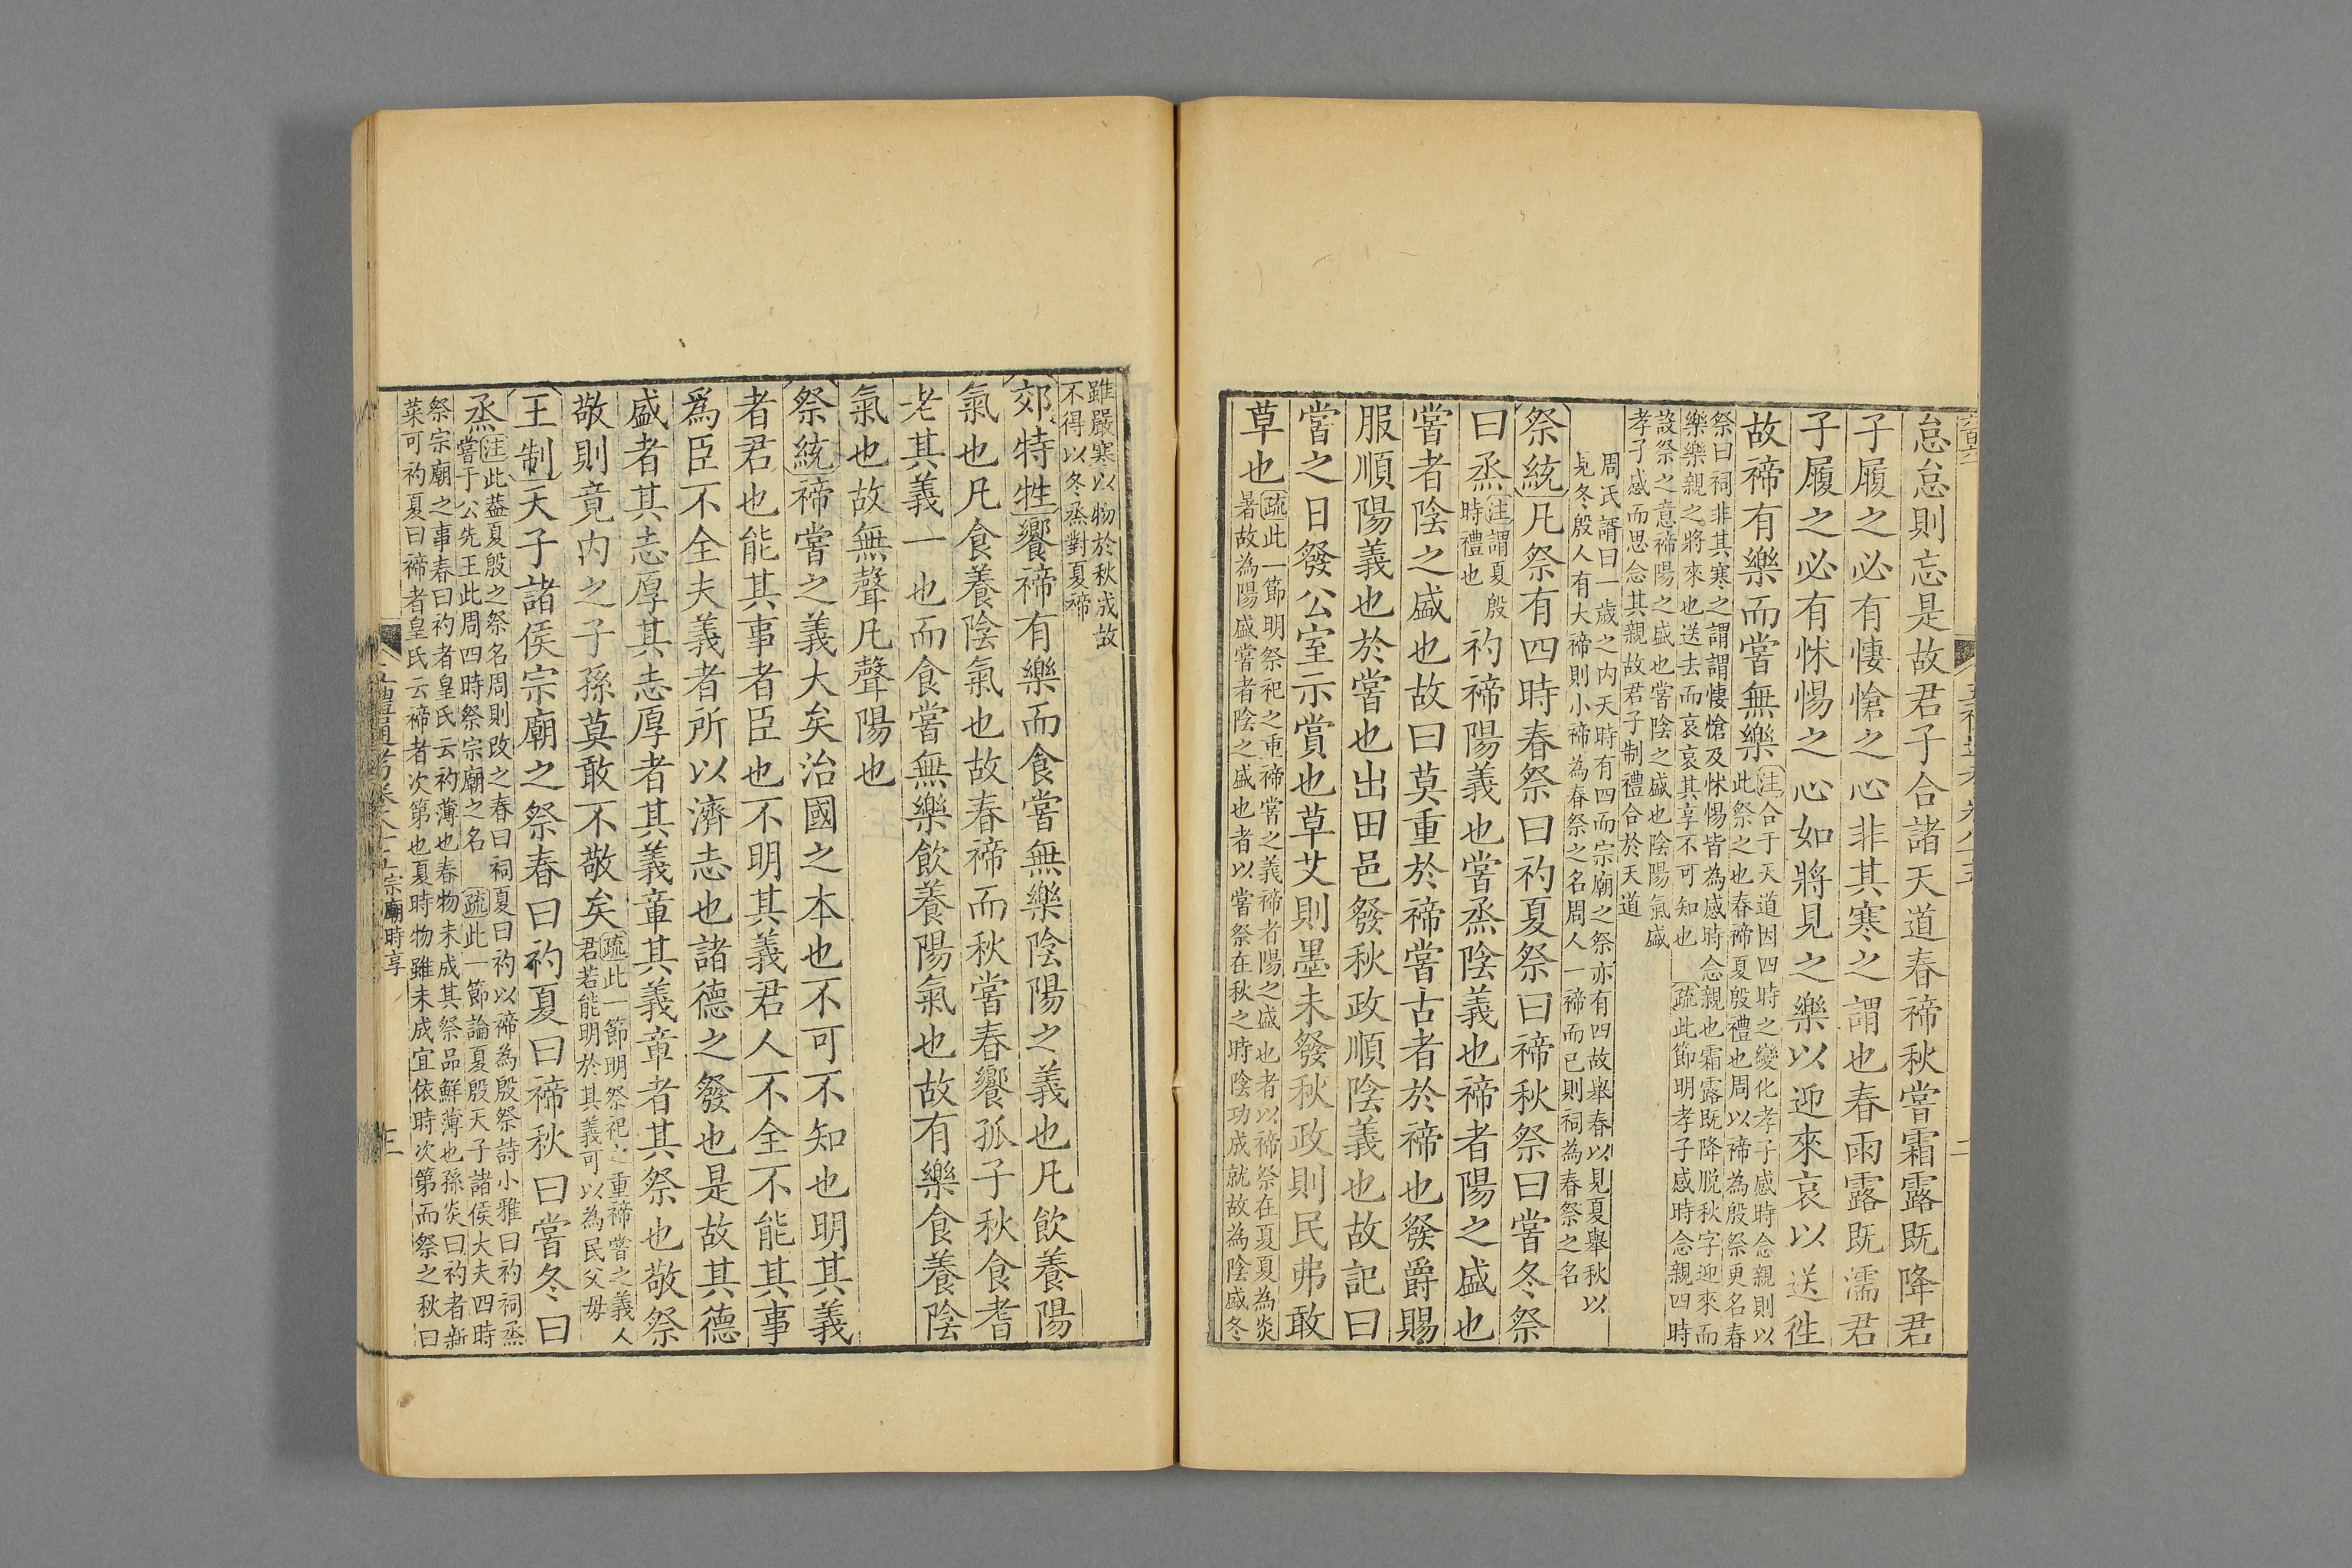 怠怠則忘是故君子合諸天道春禘秋嘗霜露既降君
子履之必有悽愴之心非其寒之謂也春雨露既濡君
子履之必有怵惕之心如將見之樂以迎來哀以送徃
故禘有樂而嘗無樂注合于天道因四時之變化孝子感時念親則以
此祭之也春禘夏殷禮也周以禘為殷祭更名春
祭曰祠非其寒之謂謂悽愴及怵惕皆為感時念親也霜露既降脱秋字迎來而
樂樂親之將來也送去而哀哀其享不可知也 疏此節明孝子感時念親四時
設祭之意禘陽之盛也嘗陰之盛也陰陽氣盛
孝子感而思念其親故君子制禮合於天道
周氏諝曰一歲之内天時有四而宗廟之祭亦有四故舉春以見夏舉秋以
見冬殷人有大禘則小禘為春祭之名周人一禘而已則祠為春祭之名
祭統凡祭有四時春祭曰礿夏祭曰禘秋祭曰嘗冬祭
曰烝注謂夏殷
時禮也 礿禘陽義也嘗烝陰義也禘者陽之盛也
嘗者陰之盛也故曰莫重於禘嘗古者於禘也發爵賜
服順陽義也於嘗也出田邑發秋政順陰義也故記曰
嘗之日發公室示賞也草艾則墨未發秋政則民弗敢
草也疏此一節明祭祀之重禘嘗之義禘者陽之盛也者以禘祭在夏夏為炎
暑故為陽盛嘗者陰之盛也者以嘗祭在秋之時陰功成就故為陰盛冬
雖嚴寒以物於秋成故
不得以冬烝對夏禘
郊特牲饗禘有樂而食嘗無樂陰陽之義也凡飲養陽
氣也凡食養陰氣也故春禘而秋嘗春饗孤子秋食耆
老其義一也而食嘗無樂飲養陽氣也故有樂食養陰
氣也故無聲凡聲陽也
祭統禘嘗之義大矣治國之本也不可不知也明其義
者君也能其事者臣也不明其義君人不全不能其事
爲臣不全夫義者所以濟志也諸德之發也是故其德
盛者其志厚其志厚者其義章其義章者其祭也敬祭
敬則竟内之子孫莫敢不敬矣疏此一節明祭祀之重禘嘗之義人
君若能明於其義可以為民父母
王制天子諸侯宗廟之祭春曰礿夏曰禘秋曰嘗冬曰
烝注此蓋夏殷之祭名周則改之春曰祠夏曰礿以禘為殷祭詩小雅曰礿祠烝
嘗于公先王此周四時祭宗廟之名 疏此一節論夏殷天子諸侯大夫四時
祭宗廟之事春曰礿者皇氏云礿薄也春物未成其祭品鮮薄也孫炎曰礿者新
菜可礿夏曰禘者皇氏云禘者次第也夏時物雖未成宜依時次第而祭之秋曰
宗廟時享
三